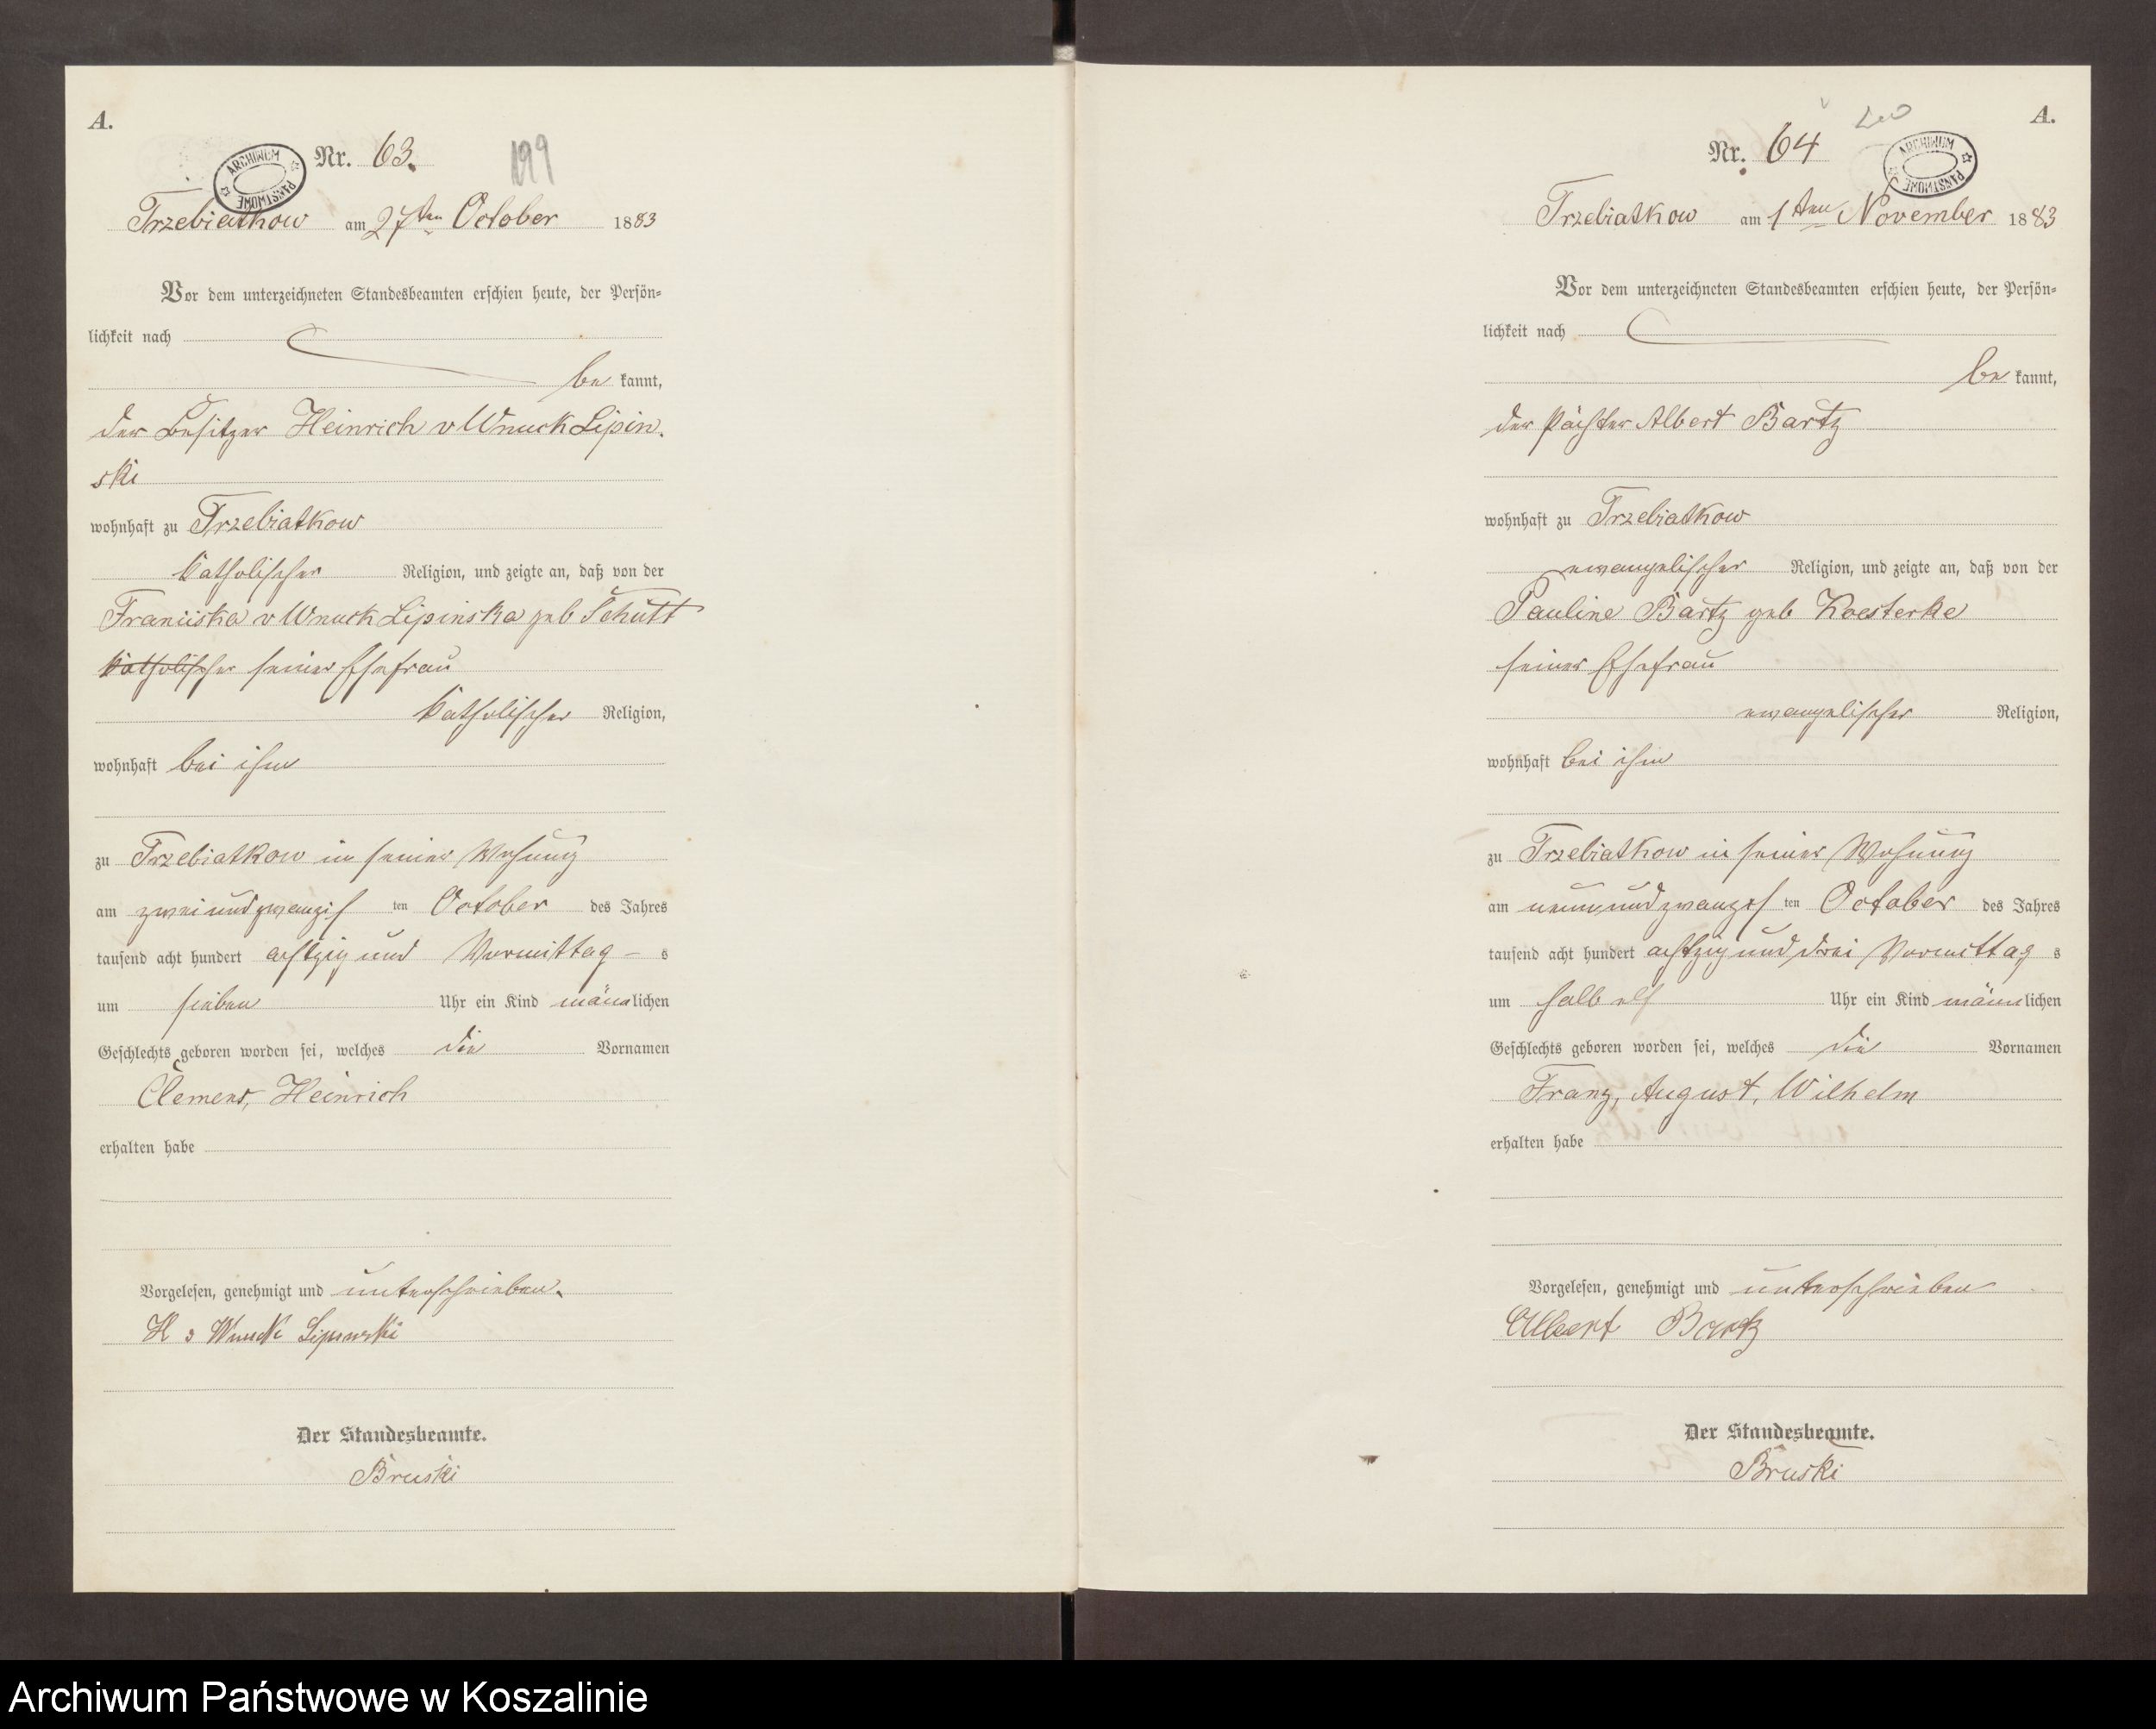 A.
Nr. 63.
199
ARCHIWUM PAŃSTWOWE
Trzebiatkow am 27ten October 1883
Vor dem unterzeichneten Standesbeamten erschien heute, der Persön-
lichkeit nach
be kannt,
der Besitzer Heinrich v Wnuck Lipin.
ski
wohnhaft zu Trzebiatkow
katholischer Religion, und zeigte an, daß von der
Franciska v Wnuck Lipinska geb Schütt
katholischer seiner Ehefrau
katholischer Religion,
wohnhaft bei ihm
zu Trzebiatkow in seiner Wohung
am zweiundzwanzigs ten October des Jahres
tausend acht hundert achtzig und Vormittag s
um sieben Uhr ein Kind männlichen
Geschlechts geboren worden sei, welches die Vornamen
Clemens, Heinrich
erhalten habe
Vorgelesen, genehmigt und unterschrieben.
H v Wnuck Lipinski
Der Standesbeamte.
Bruski
A.
Nr. 64
ARCHIWUM PAŃSTWOWE
Trzebiatkow am 1ten November 1883
Vor dem unterzeichneten Standesbeamten erschien heute, der Persön-
lichkeit nach
be kannt,
der Pächter Albert Bartz
wohnhaft zu Trzebiatkow
ewangelischer Religion, und zeigte an, daß von der
Pauline Bartz geb Koesterke
seiner Ehefrau
ewangelischer Religion,
wohnhaft bei ihm
zu Trzebiatkow in seiner Wohung
am neunundzwanzgs ten October des Jahres
tausend acht hundert achtzig und drei Vormittag s
um halb elf Uhr ein Kind männlichen
Geschlechts geboren worden sei, welches die Vornamen
Franz, August, Wilhelm
erhalten habe
Vorgelesen, genehmigt und unterschrieben
Albert Bartz
Der Standesbeamte.
Bruski
Archiwum Państwowe w Koszalinie